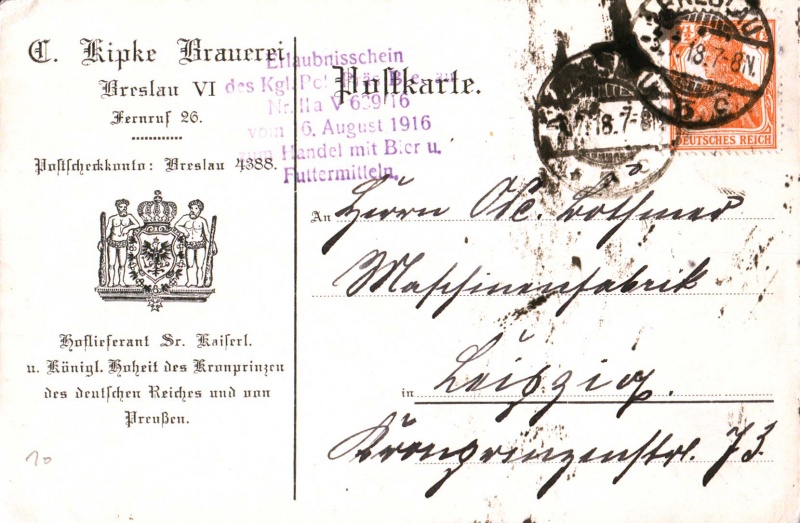 C. Kipke Brauerei
Breslau VI
Fernruf 26.
Postscheckkonto: Breslau 4388.
Hoflieferant Sr. Kaiserl.
u. Königl. Hoheit des Kronprinzen
des deutschen Reiches und von
Preußen.
10
Erlaubnisschein
des Kgl.
Nr. IIa V 639/16
vom 6. August 1916
zum Handel mit Bier u.
Futtermitteln.
Postkarte.
BRESLAU
18.7-8N.
18.7-8
DEUTSCHES REICH
An Herrn Bothmer
Maschinenfabrik
in Leipzig.
Kronprinzenstr. 73.